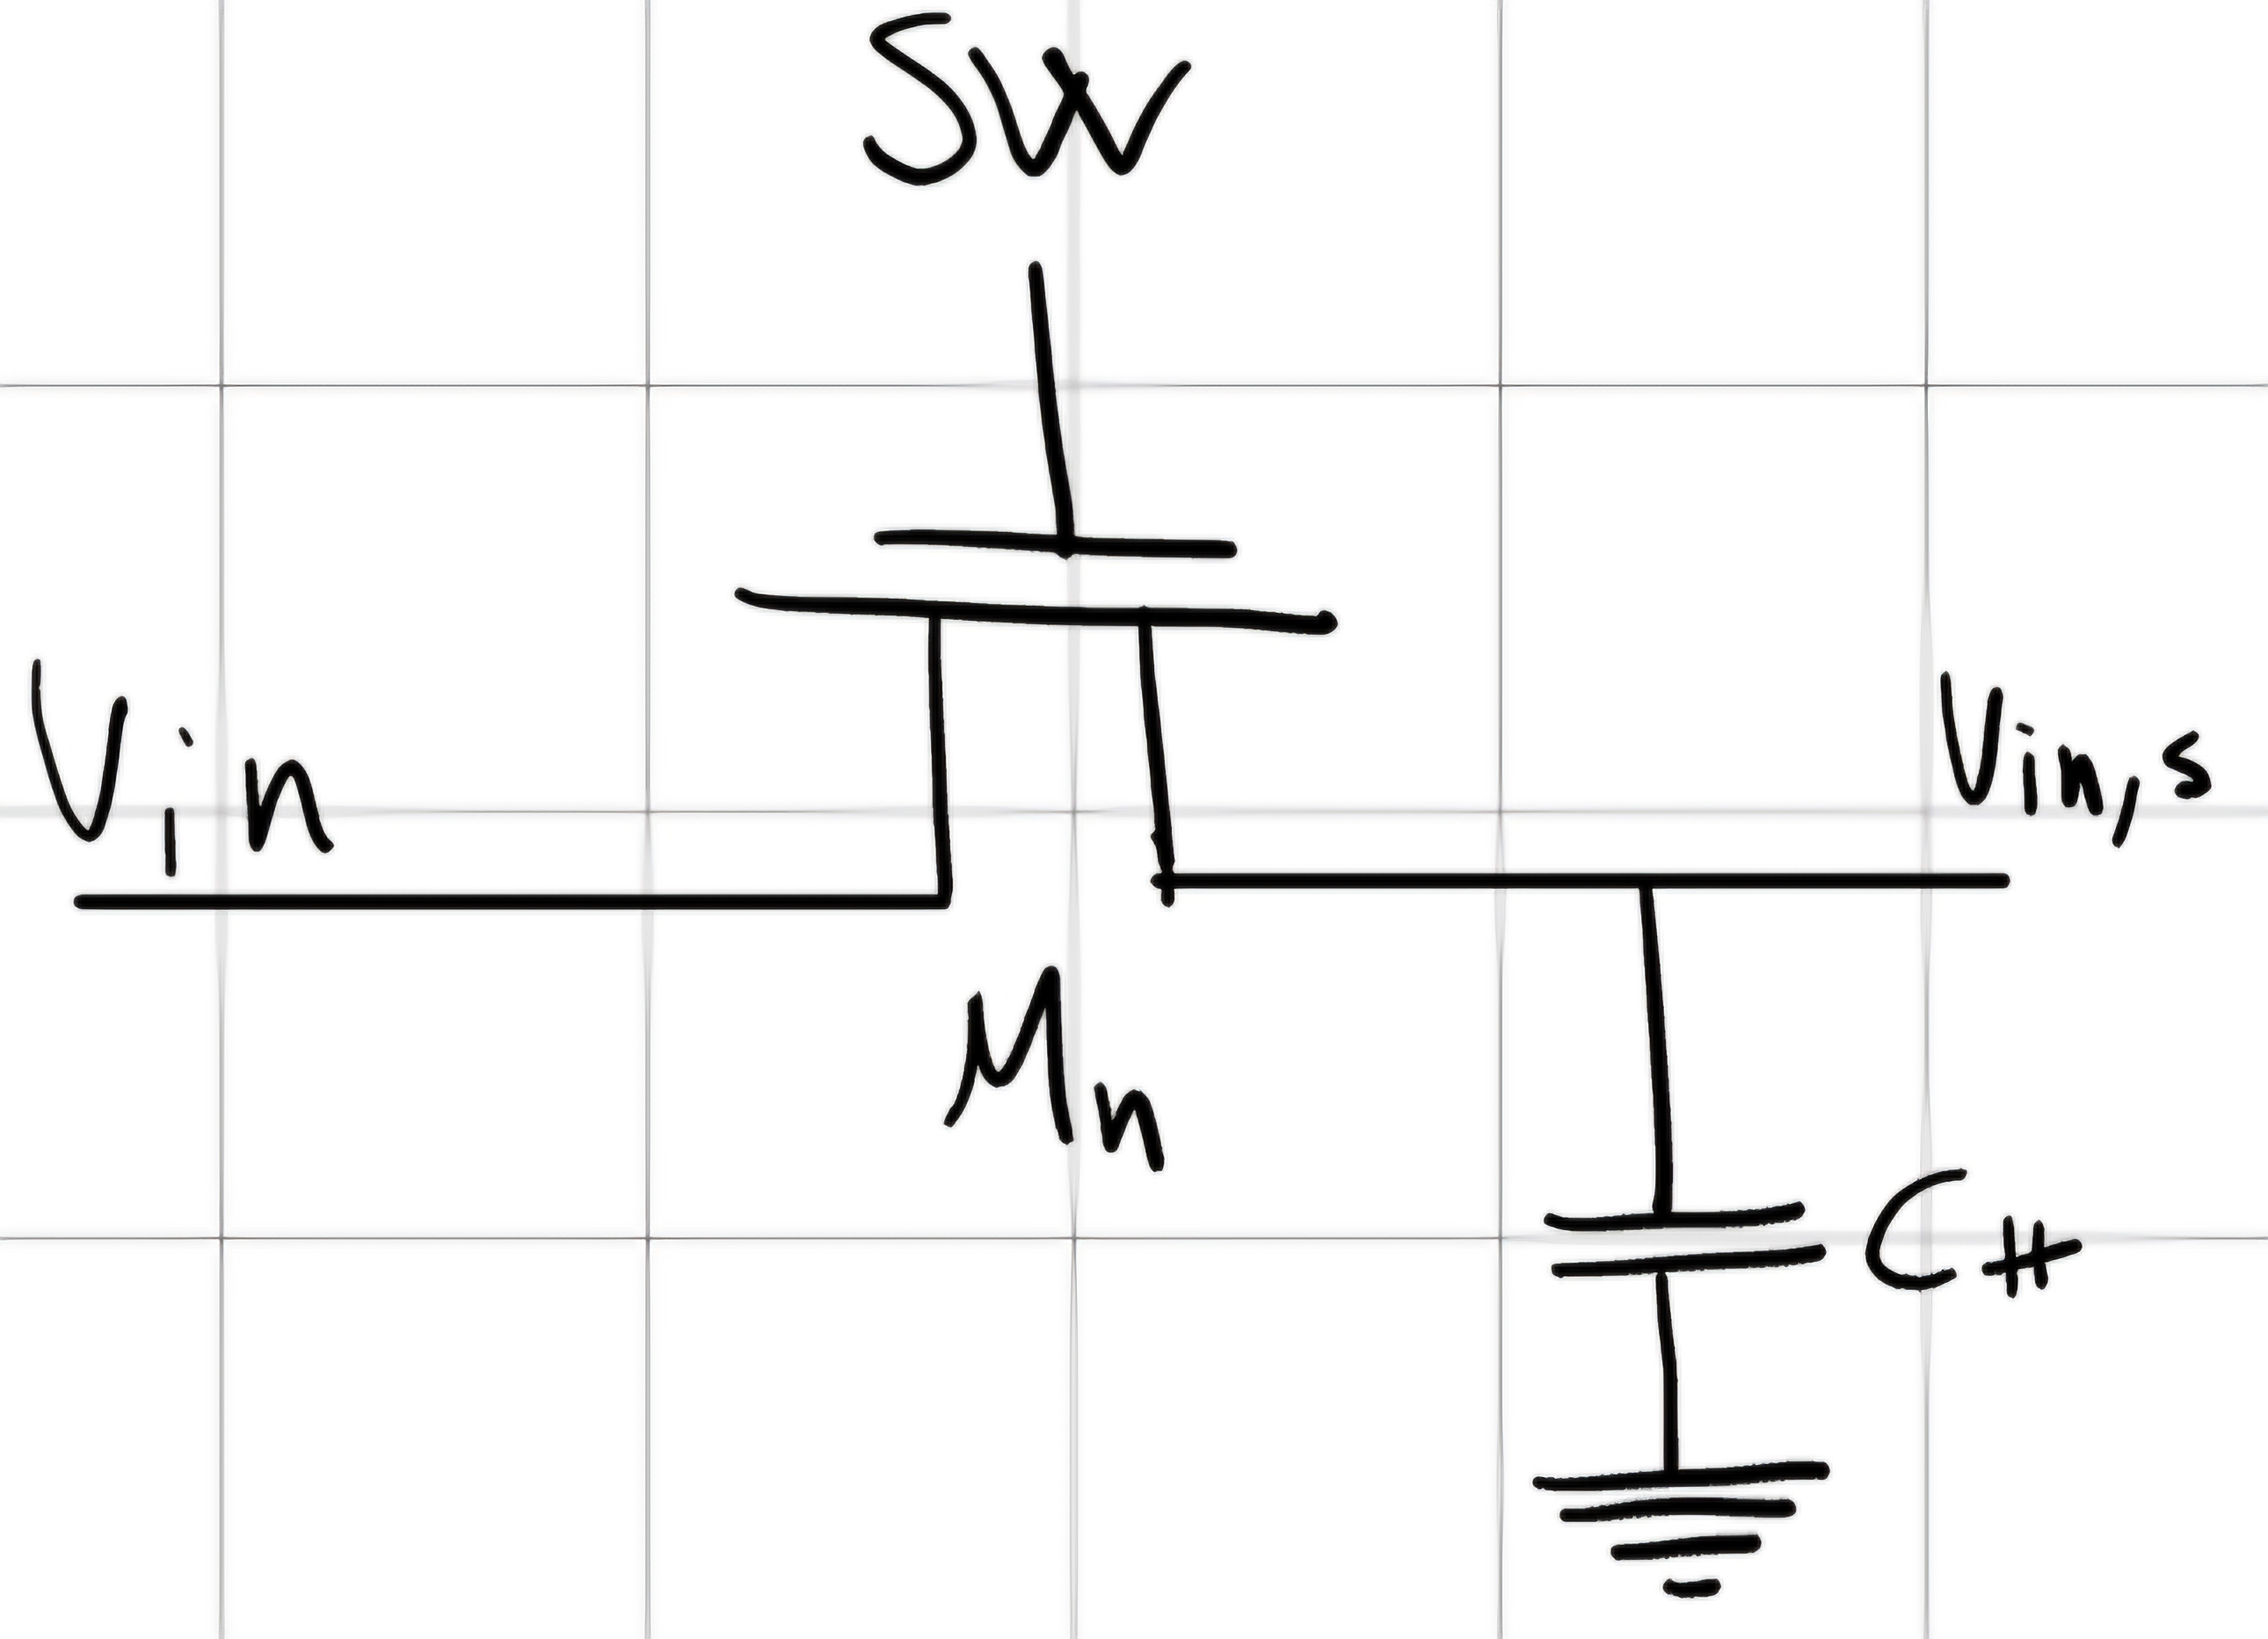 SW
Vin
Vin,s
Mn
CH